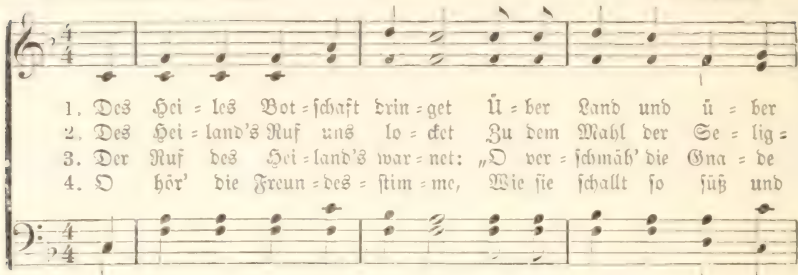 1. Des Hei = les Bot = schaft drin = get Ü = ber Land und ü = ber
2. Des Hei = land's Ruf uns lo = cket Zu dem Mahl der Se = lig =
3. Der Ruf des Hei = land's war = net: „O ver = schmäh' die Gna = de
4. O hör' die Freun = des = stim = me, Wie sie schallt so süß und